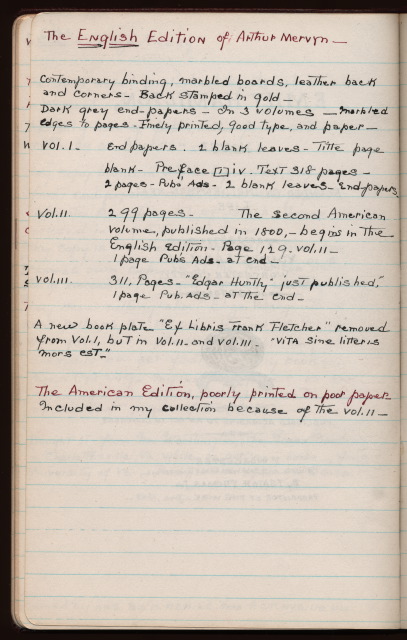 The English Edition of Arthur Mervyn —
Contemporary binding, marbled boards, leather back
and corners - Back stamped in gold —
Dark grey end-papers — In 3 volumes — marbled
edges to pages - Finely printed, good type, and paper —
Vol. I - End papers. 2 blank leaves - Title page
blank - Preface [i] iv. Text 318 pages -
2 pages - Pubs Ads - 2 blank leaves - End-papers
Vol. II. 299 pages - The Second American
volume, published in 1800, - begins in the
English edition - Page 129. Vol. II -
1 page Pubs Ads - at end —
Vol. III. 311, Pages - "Edgar Huntly" just published,"
1 page Pub. Ads - at the end -
A new book plate "Ex Libris Frank Fletcher" removed
from Vol. I, but in Vol. II - and Vol. III - "Vita sine litteris
mors est."
The American Edition, poorly printed on poor paper -
Included in my collection because of the Vol. II —